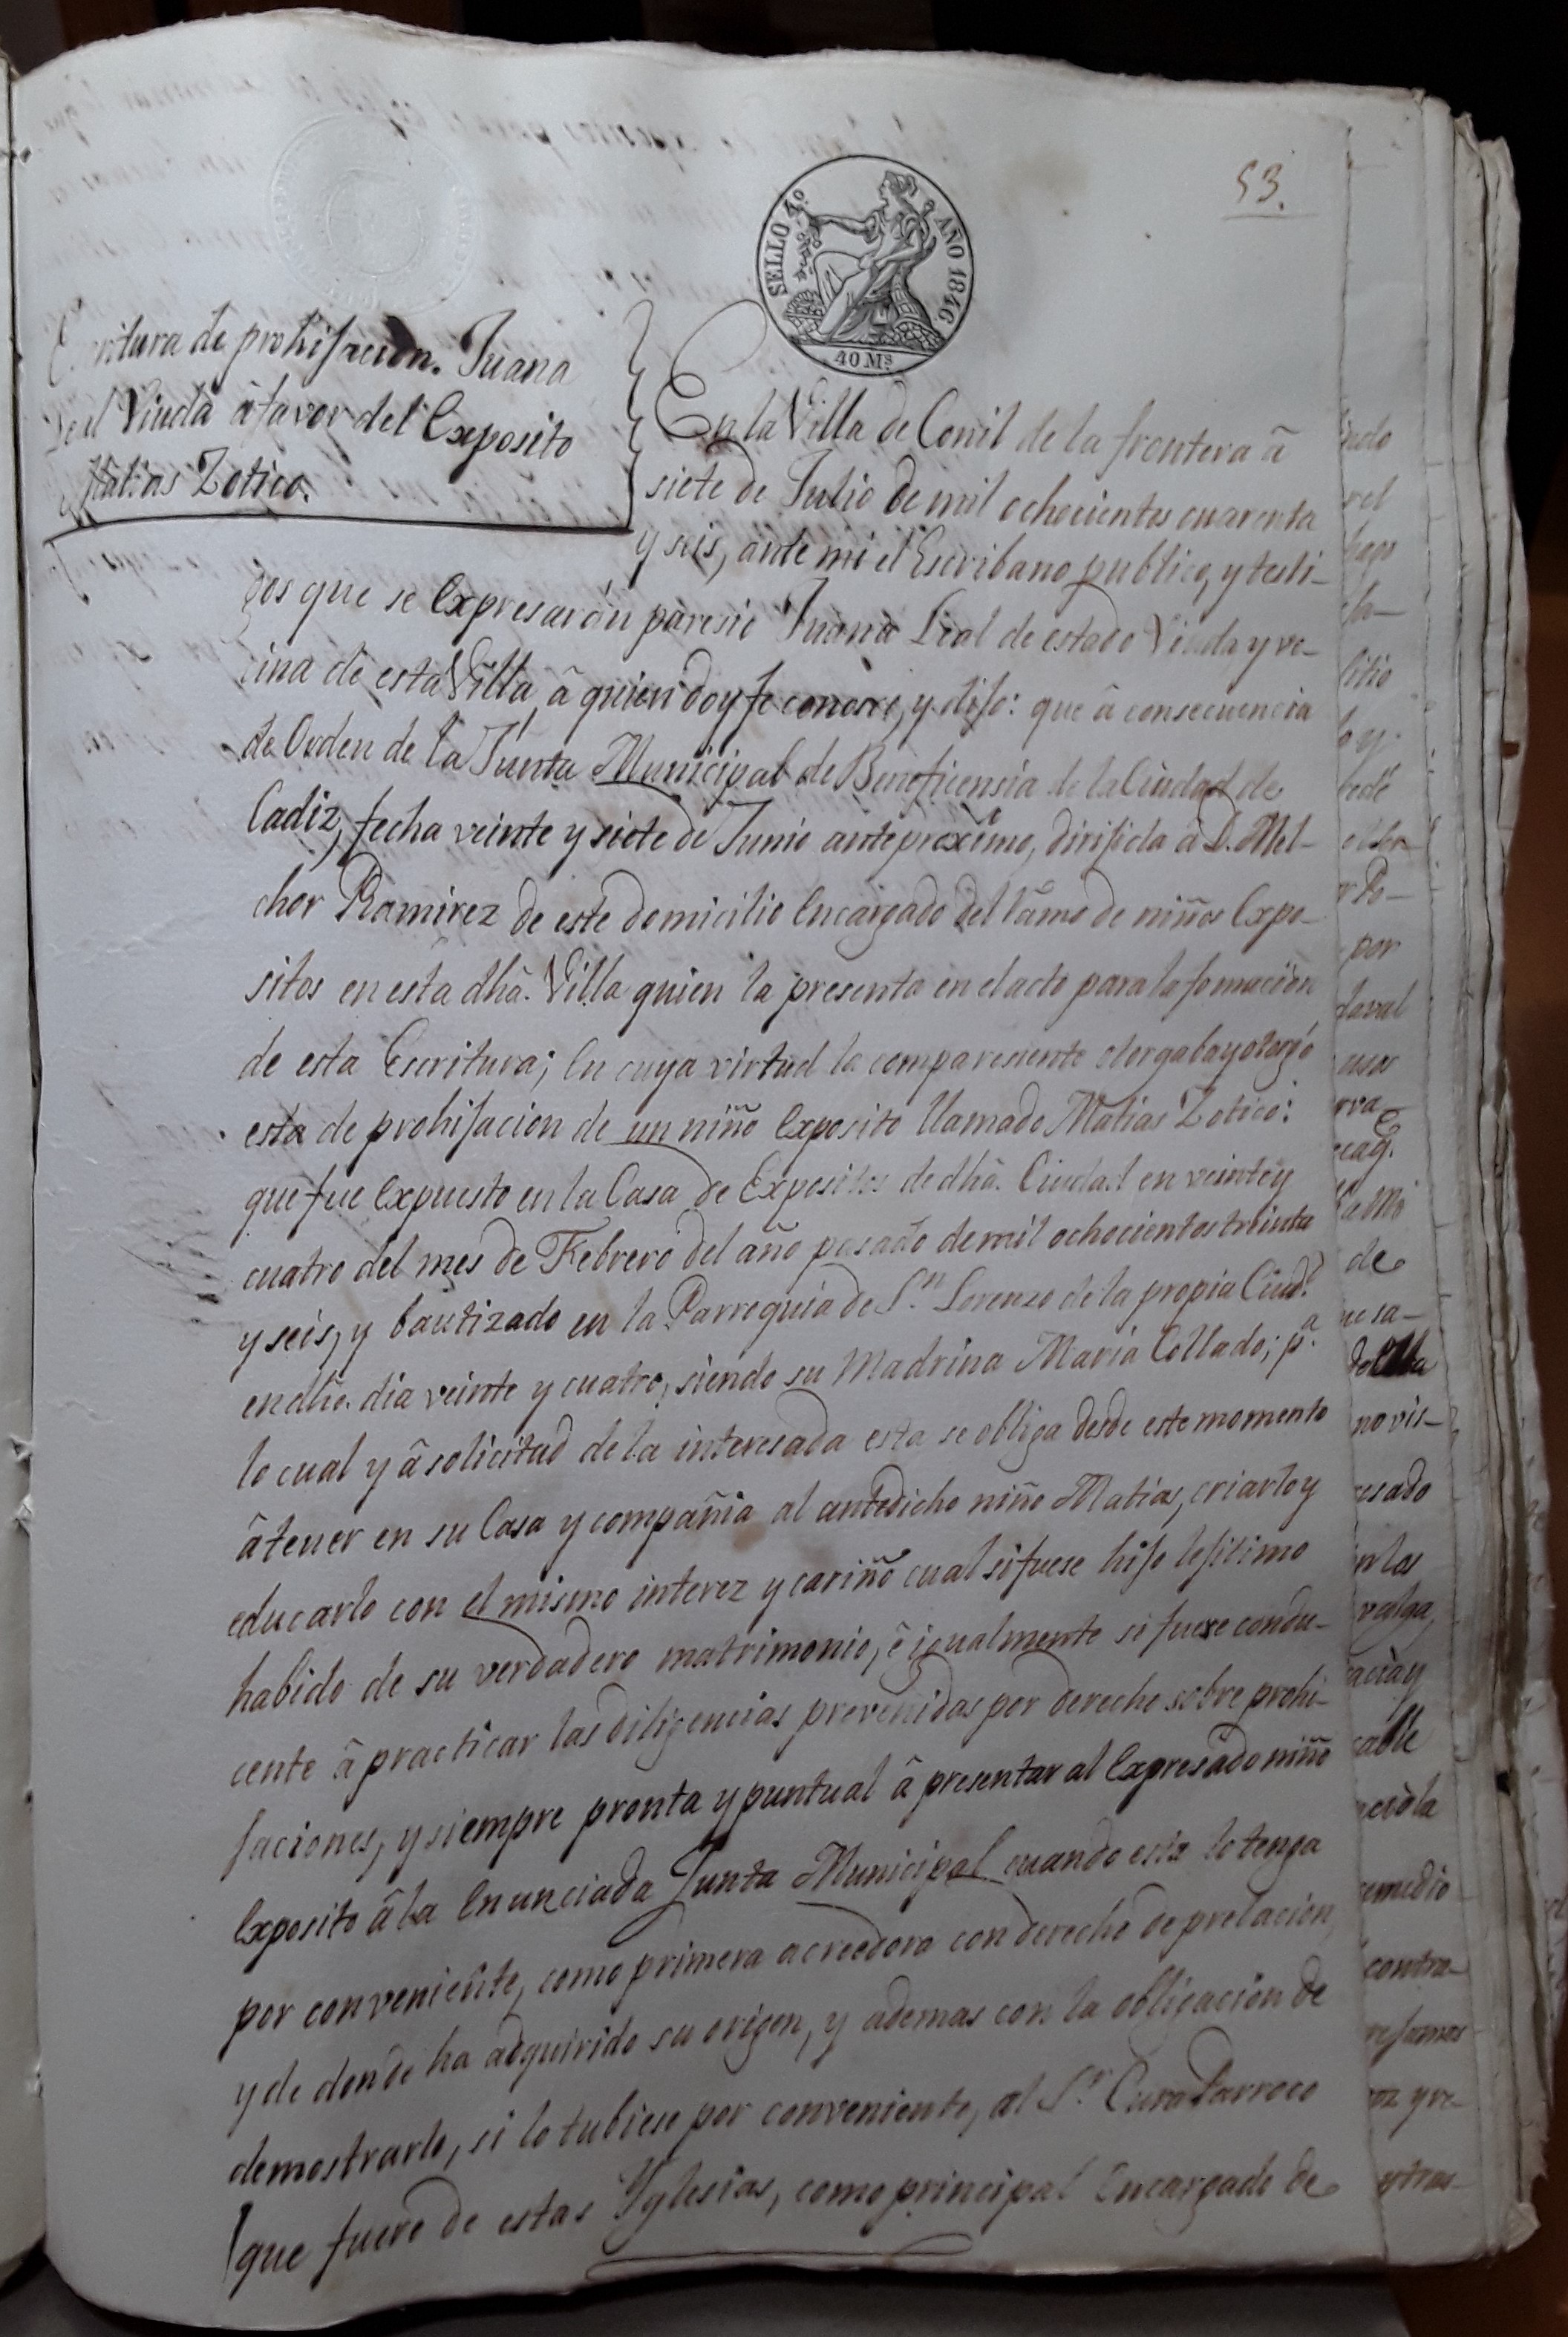 53.
SELLO 4º AÑO 1846
40 Ms
Escritura de prohifacion. Juana
Leal Viuda â favor del Exposito
Matias Zotico.
En la Villa de Conil de la frontera â
siete de Julio de mil ochocientos cuarenta
y seis, ante mi el Escribano publico, y testi-
gos que se Expresarán paresio Juana Leal de estado Viuda y ve-
cina de esta Villa, â quien doy fe conosco, y difo: que â consecuencia
de Orden de la Junta Municipal de Beneficensia de la Ciudad de
Cadiz, fecha veinte y siete de Junio anteproximo, dirifida a D. Mel-
chor Ramirez de este domicilio Encargado del ramo de niños Expo-
sitos en esta dhâ. Villa quien la presenta en el acto para la fomacion
de esta Escritura; En cuya virtud la comparesiente otorgaba y otorgó
esta de prohifacion de un niño Exposito llamado Matias Zotico:
que fue Expuesto en la Casa de Expositos de dhâ. Ciudad en veinte y
cuatro del mes de Febrero del año pasado de mil ochocientos treinta
y seis, y bautizado en la Parroquia de S.n Lorenzo de la propia Ciud.d
en dhô. dia veinte y cuatro, siendo su Madrina Maria Collado; p.a
lo cual y â solicitud de la interesada esta se obliga desde este momento
â tener en su Casa y compañia al antedicho niño Matias, criarlo y
educarlo con el mismo interez y cariño cual si fuese hifo lefitimo
habido de su verdadero matrimonio, ê igualmente si fuere condu-
cente â practicar las diligencias prevenidas por derecho sobre prohi-
faciones, y siempre pronta y puntual â presentar al Expresado niño
Exposito â la Enunciada Junta Municipal cuando esta lo tenga
por conveniente, como primera acreedora con derecho de prelacion,
y de donde ha adquirido su origen, y ademas con la obligacion de
demostrarlo, si lo tubiese por conveniente, al S.r Cura Parroco
que fuere de estas Yglesias, como principal Encargado de